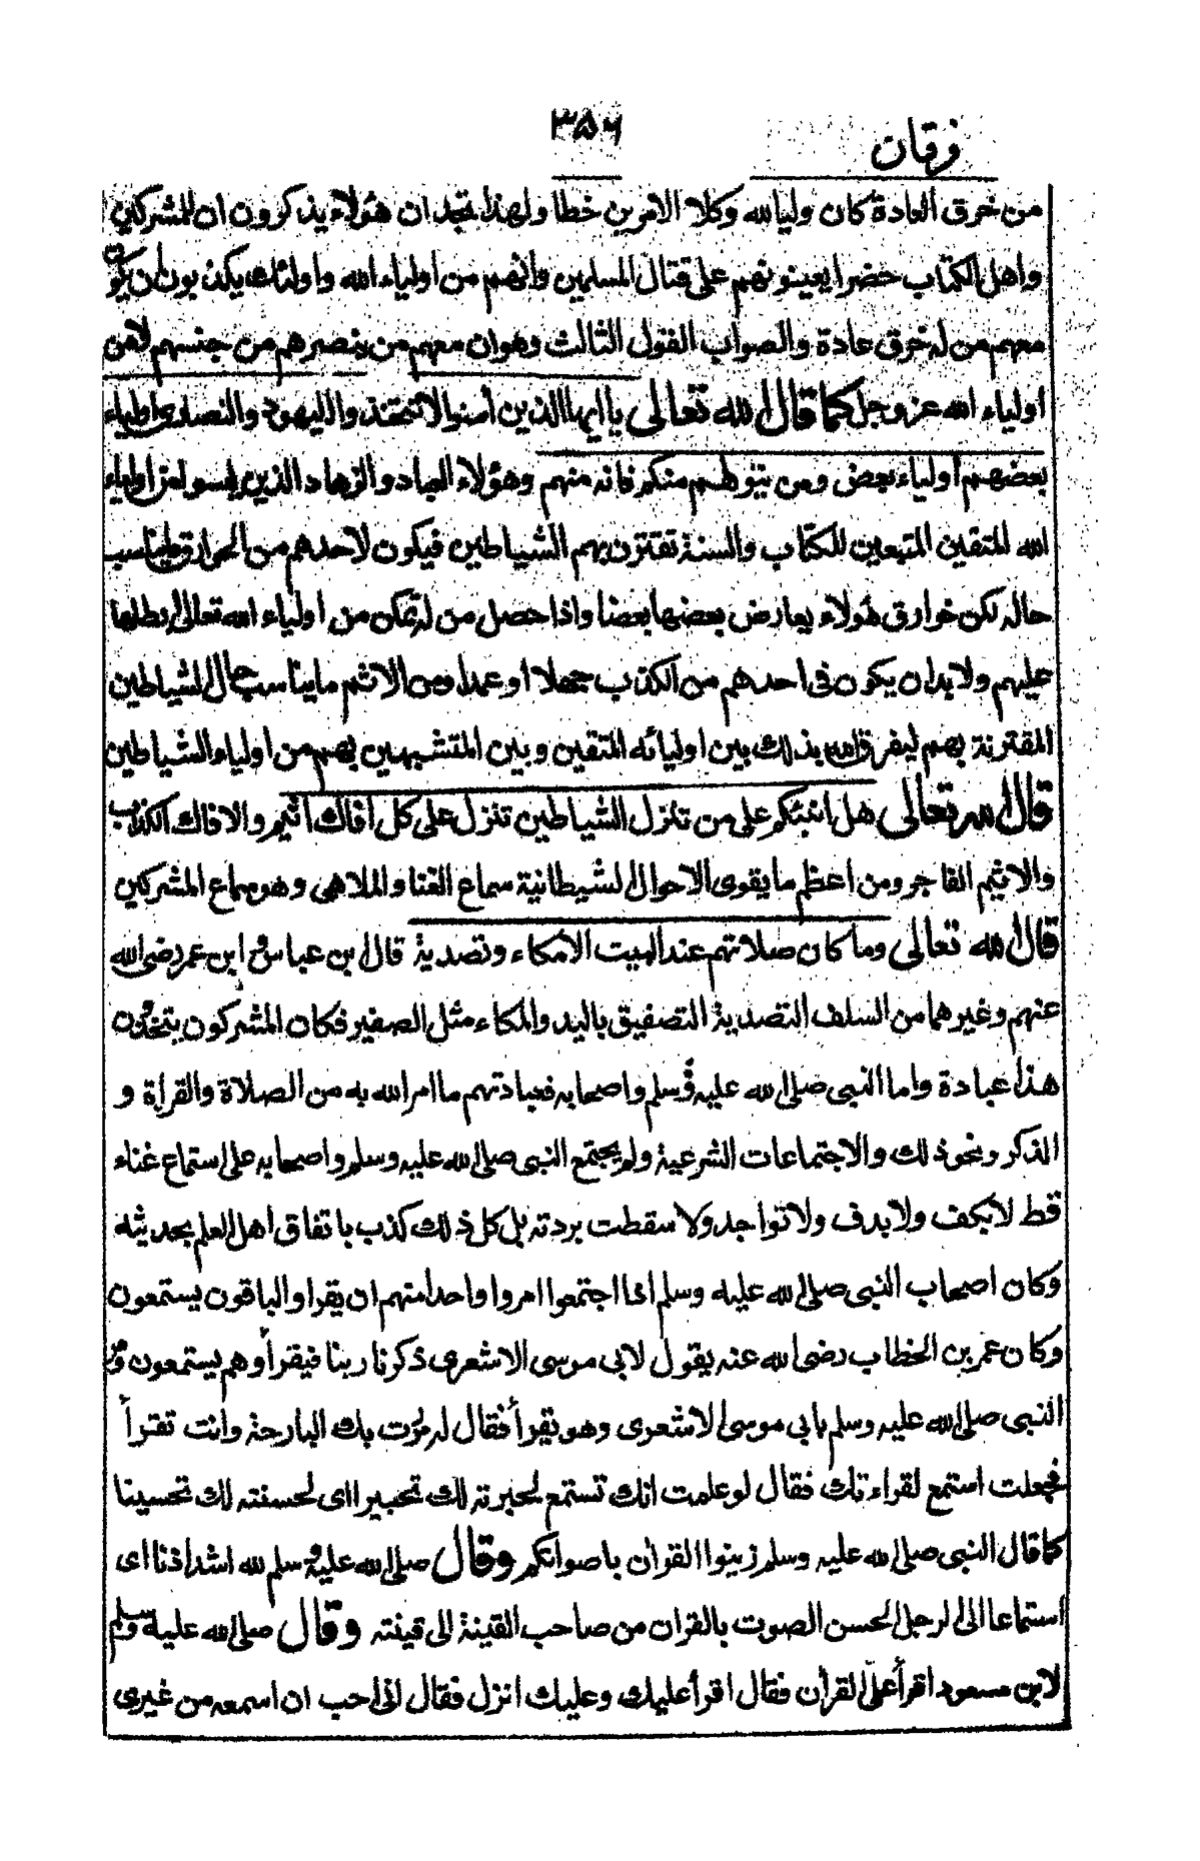 ٣٥٦
فرقان
من خرق العادة كان وليا لله وكلا الامرين خطا ولهذا تجد ان هؤلاء يذكرون ان للمشركين
واهل الكتاب خضرا يعينونهم على قتال المسلمين وانهم من اولياء الله واولئك يكذبون ان يكون
معهم من له خرق عادة والصواب القول الثالث وهو ان معهم من ينصرهم من جنسهم لا من
اولياء الله عز وجل كما قال الله تعالى يا ايها الذين امنوا لا تتخذوا اليهود والنصارى اولياء
بعضهم اولياء بعض ومن يتولهم منكم فانه منهم وهؤلاء العباد والزهاد الذين ليسوا من اولياء
الله المتقين المتبعين للكتاب والسنة تقترن بهم الشياطين فيكون لاحدهم من الخوارق ما يناسب
حاله لكن خوارق هؤلاء يعارض بعضها بعضا واذا حصل من له تمكن من اولياء الله تعالى ابطلها
عليهم ولا بد ان يكون فى احدهم من الكذب جهلا او عمدا ومن الاثم ما يناسب حال الشياطين
المقترنة بهم ليفرق الله بذلك بين اوليائه المتقين وبين المتشبهين بهم من اولياء الشياطين
قال الله تعالى هل انبئكم على من تنزل الشياطين تنزل على كل افاك اثيم والافاك الكذاب
والاثيم الفاجر ومن اعظم ما يقوى الاحوال الشيطانية سماع الغنا والملاهى وهو سماع المشركين
قال الله تعالى وما كان صلاتهم عند البيت الا مكاء وتصدية قال ابن عباس وابن عمر رضى الله
عنهم وغيرهما من السلف التصدية التصفيق باليد والمكاء مثل الصفير فكان المشركون يتخذون
هذا عبادة واما النبى صلى الله عليه وسلم واصحابه فعبادتهم ما امر الله به من الصلاة والقراة و
الذكر ونحو ذلك والاجتماعات الشرعية ولم يجتمع النبى صلى الله عليه وسلم واصحابه على استماع غناء
قط لا بكف ولا بدف ولا تواجد ولا سقطت بردته بل كل ذلك كذب باتفاق اهل العلم بحديثه
وكان اصحاب النبى صلى الله عليه وسلم اذا اجتمعوا امروا واحدا منهم ان يقرا والباقون يستمعون
وكان عمر بن الخطاب رضى الله عنه يقول لابى موسى الاشعرى ذكرنا ربنا فيقرأ وهم يستمعون ومر
النبى صلى الله عليه وسلم بابى موسى الاشعرى وهو يقرأ فقال له مررت بك البارحة وانت تقرأ
فجعلت استمع لقراءتك فقال لو علمت انك تستمع لحبرته لك تحبيرا اى لحسنته لك تحسينا
كما قال النبى صلى الله عليه وسلم زينوا القران باصواتكم وقال صلى الله عليه وسلم لله اشد اذنا اى
استماعا الى الرجل الحسن الصوت بالقران من صاحب القينة الى قينته وقال صلى الله عليه وسلم
لابن مسعود اقرأ علىّ القران فقال اقرأ عليك وعليك انزل فقال انى احب ان اسمعه من غيرى